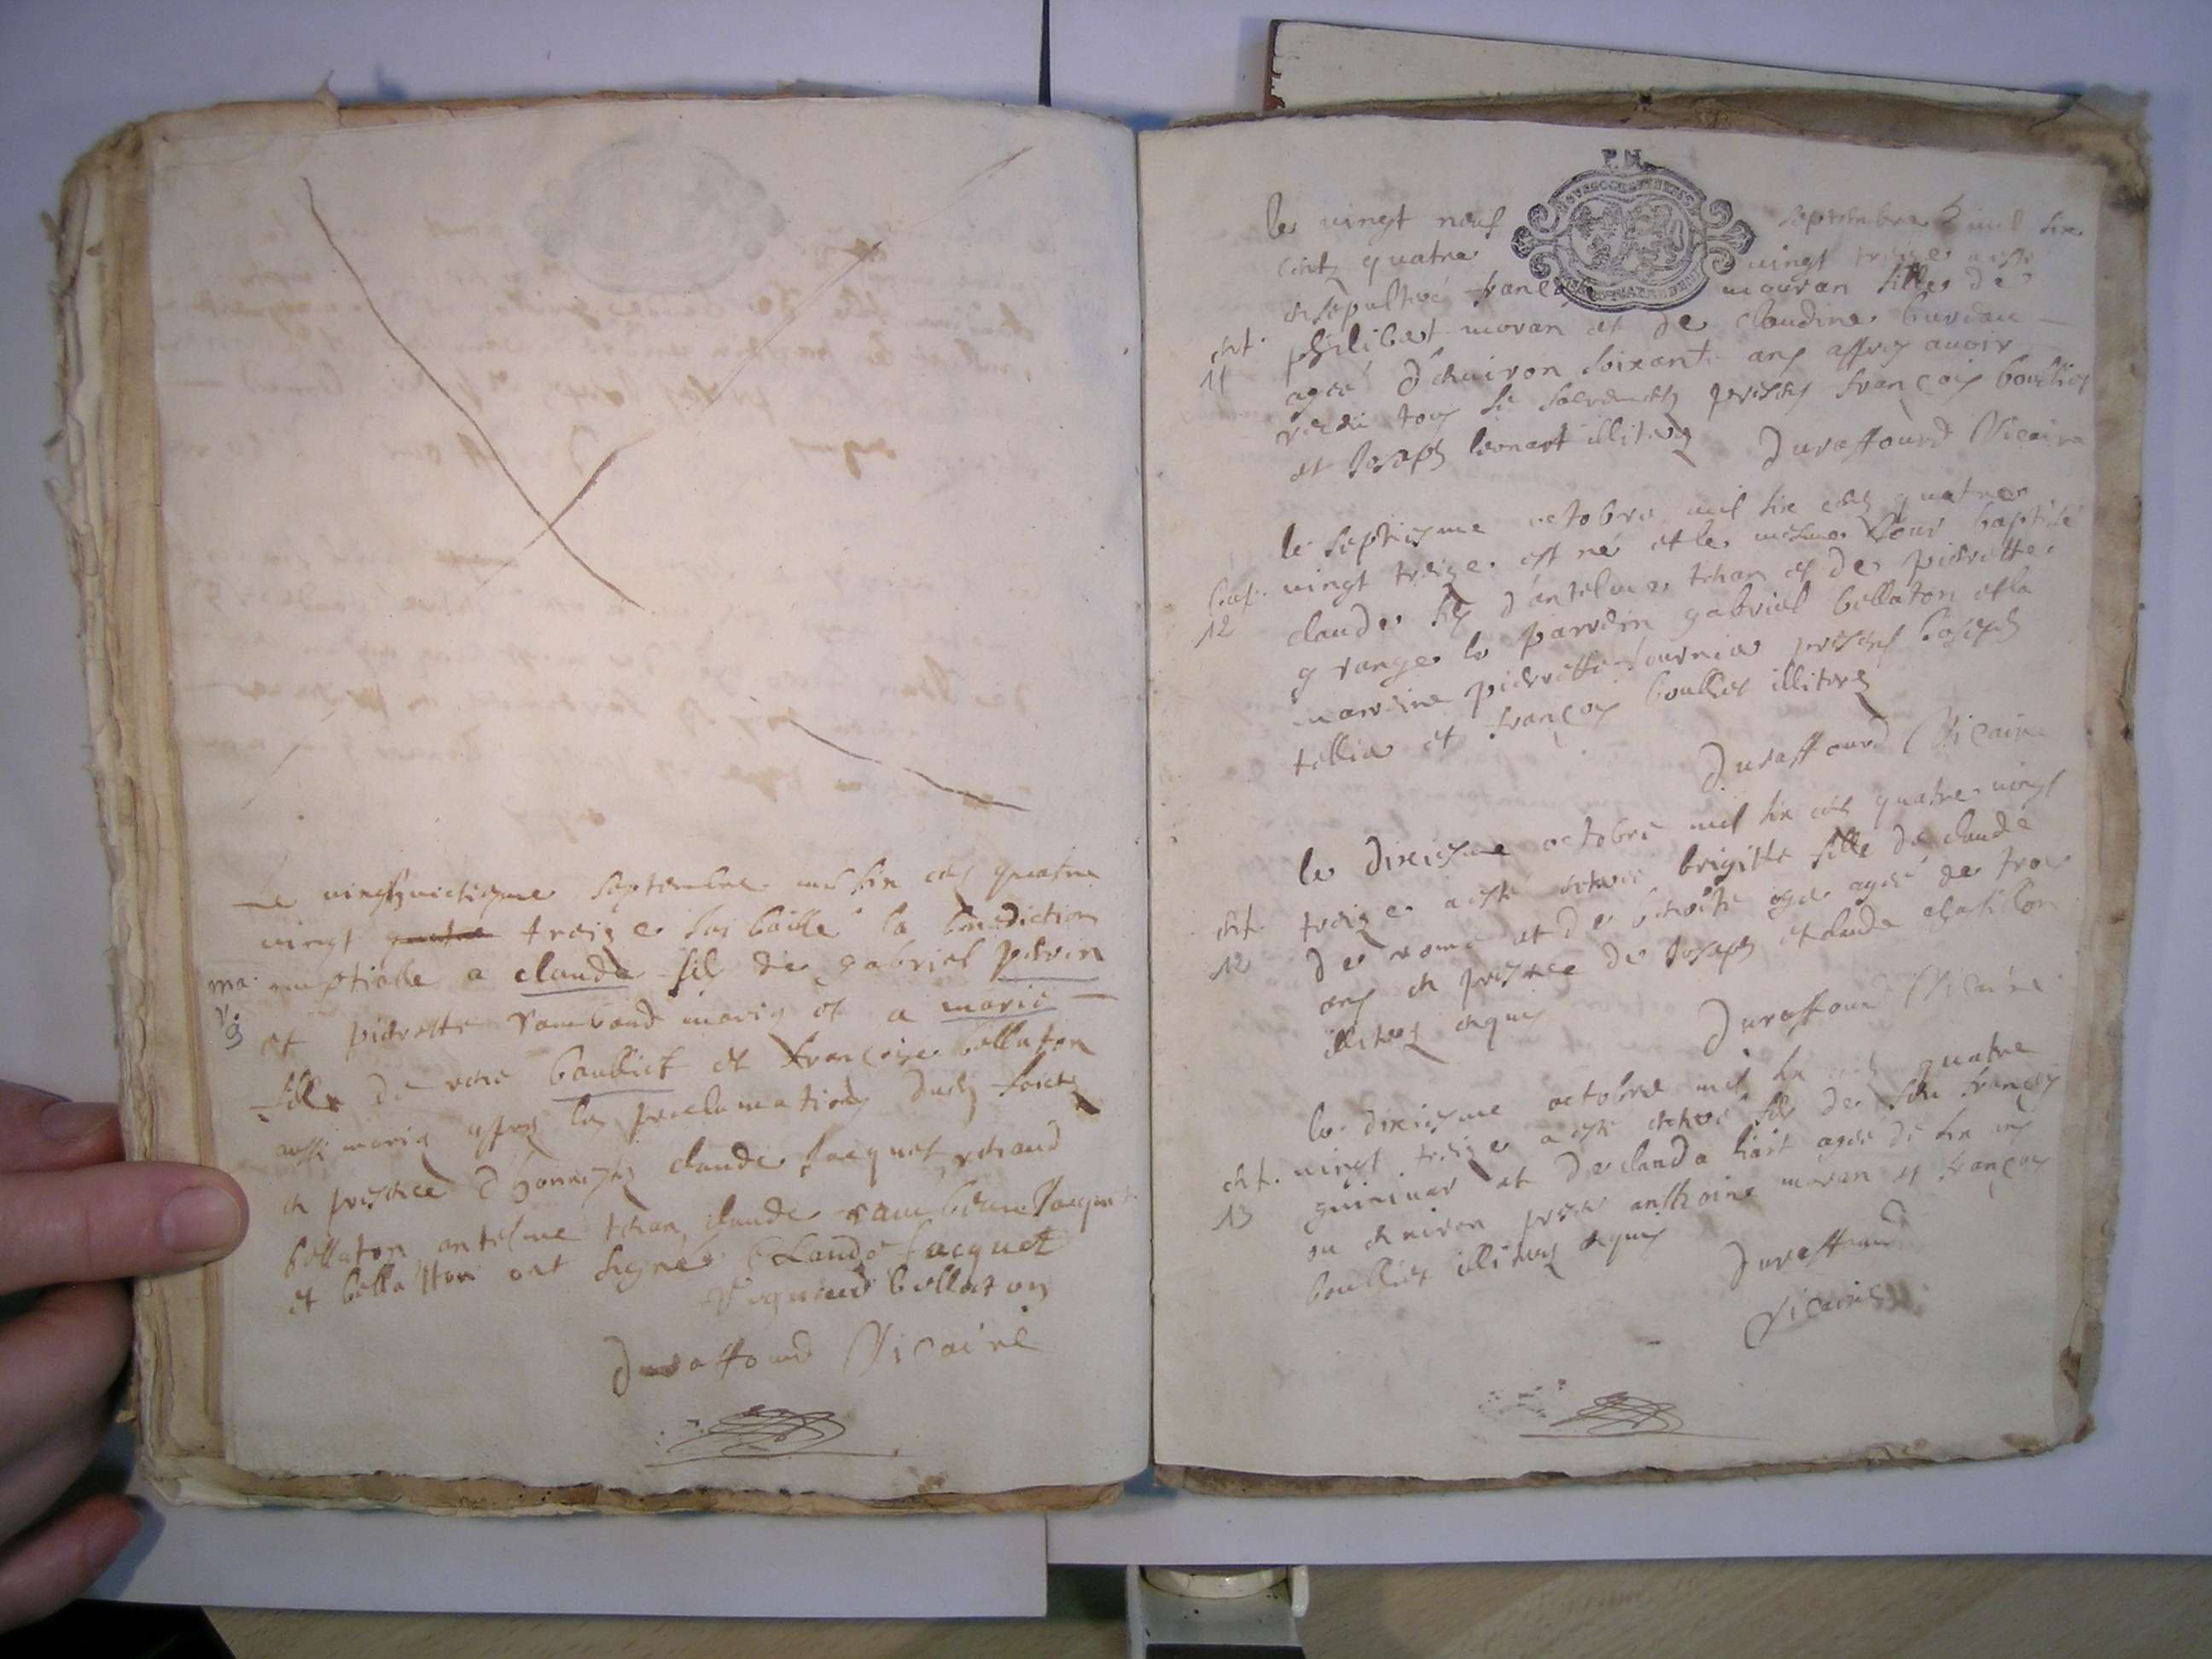 Le vingthuictiesme septembre mil six cens quatre
vingt quatre treize iay baillé la benediction
ma. nuptialle a claude fils de gabriel perrin
et pierrette rambaud mariez et a marie
fille de rené boulliet et françoise bellaton
aussi mariez appres les proclamations
en presence d'honnestes claude Jacquet
bellaton antelme tehan claude Jacquet
et bellatton ont signés Claude Jacquet
bellaton
Duraffourd Vicaire
P. M.
le vingt neuf septembre mil six
cents quatre vingt treize a esté
ensepulturé mouran fille de
ent. philibert moran et de claudine bureau
11 ageé d'enuiron soixante ans appres auoir
receu tous presens françois boullier
et Joseph leonart illiteres Duraffourd Vicaire
le septiesme octobre mil six cens quatre
bat. vingt treize est né et le mesme Jour baptisé
12 claude fils d'antelme tehan et de pierrette
grange le parrein gabriel bellaton et la
marreine pierrette fournier presens Joseph
tellier et françois boullier illiteres
Duraffourd Vicaire
le dixiesme octobre mil six cens quatre vingt
ent. treize a esté brigitte fille de claude
12 de rome et de ageé de trois
ans en presence de Joseph et claude chastillon
illiteres enquis Duraffourd Vicaire
le dixiesme octobre mil six cens quatre
ent. vingt treize a esté enterré fils de feu françois
13 et de clauda ageé de six ans
ou enuiron presens anthoine moran et françois
boullier illiteres enquis Duraffourd
Vicaire